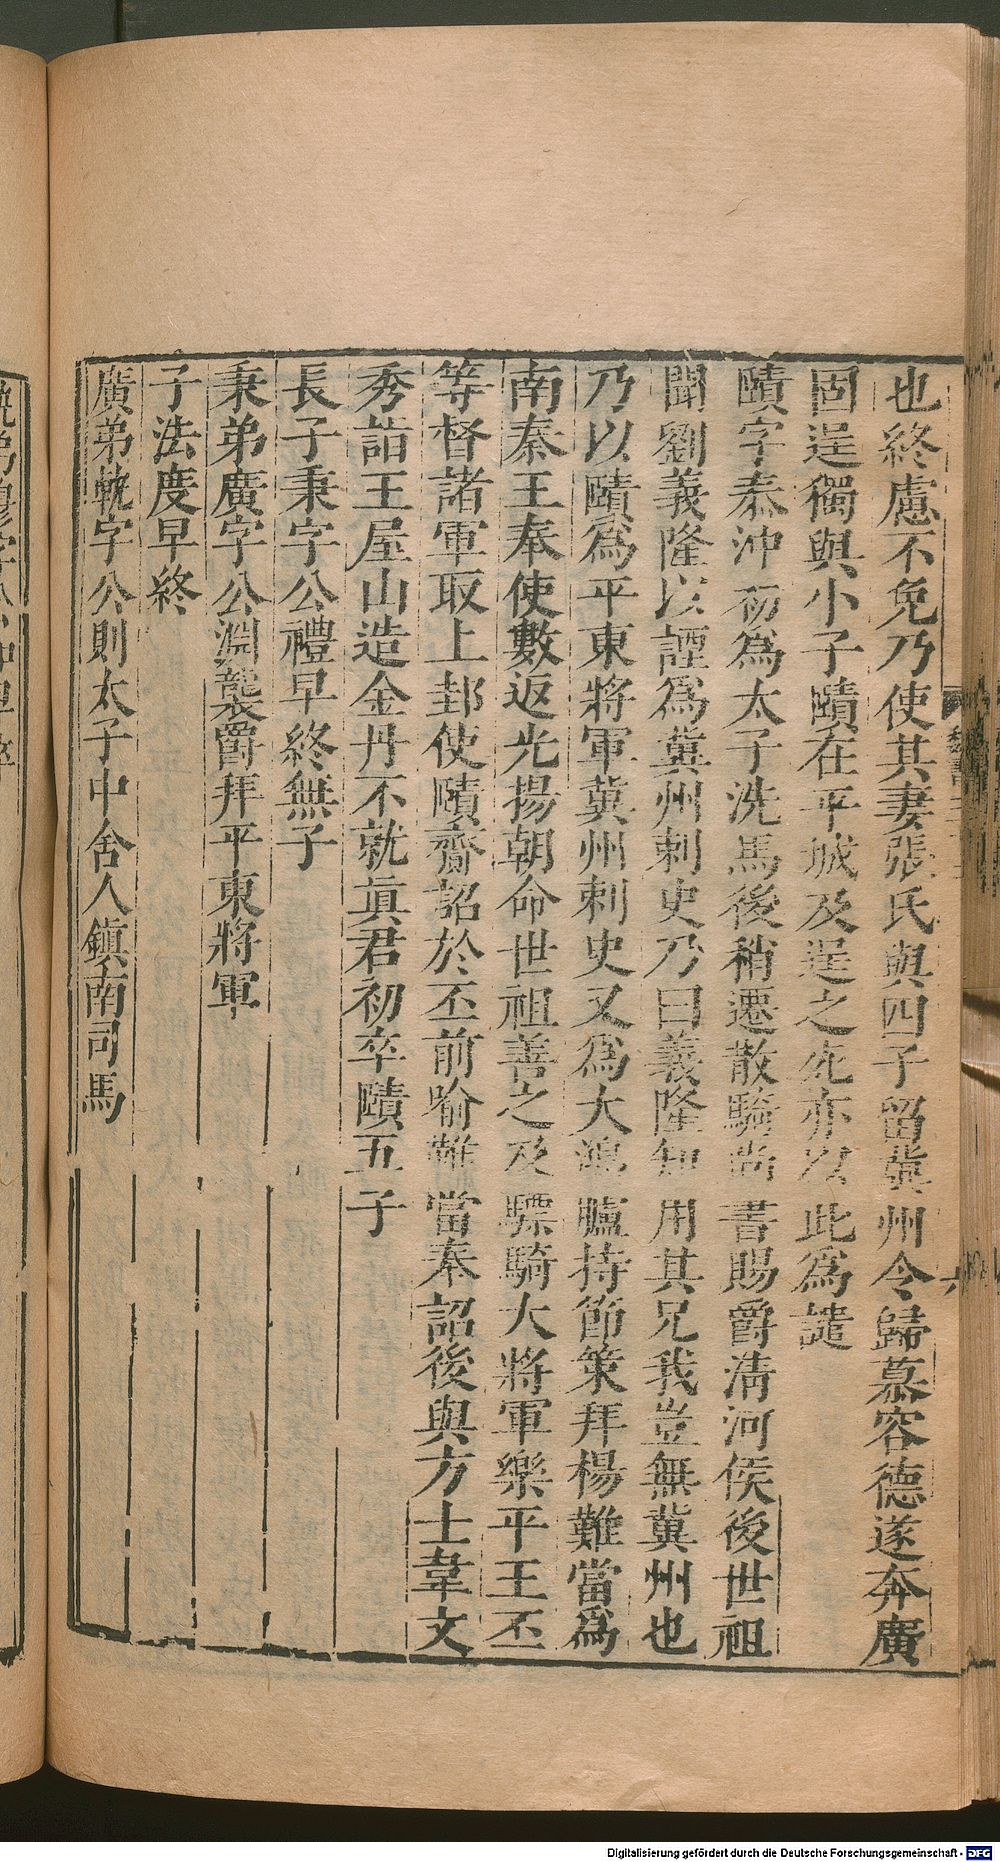 也終慮不免乃使其妻張氏與四子留冀州令歸慕容德遂奔廣
固逞獨與小子賾在平城及逞之死亦以此爲譴
賾字泰沖初爲太子洗馬後稍遷散騎尚書賜爵淸河侯後世祖
聞劉義隆以諲爲冀州刺史乃曰義隆知用其兄我豈無冀州也
乃以賾爲平東將軍冀州刺史又爲大鴻臚持節策拜楊難當爲
南秦王奉使數返光揚朝命世祖善之及驃騎大將軍樂平王丕
等督諸軍取上邽使賾齎詔於丕前喻難當奉詔後與方士韋文
秀詣王屋山造金丹不就眞君初卒賾五子
長子秉字公禮早終無子
秉弟廣字公淵襲爵拜平東將軍
子法度早終
廣弟軌字公則太子中舍人鎭南司馬
Digitalisierung gefördert durch die Deutsche Forschungsgemeinschaft - DFG